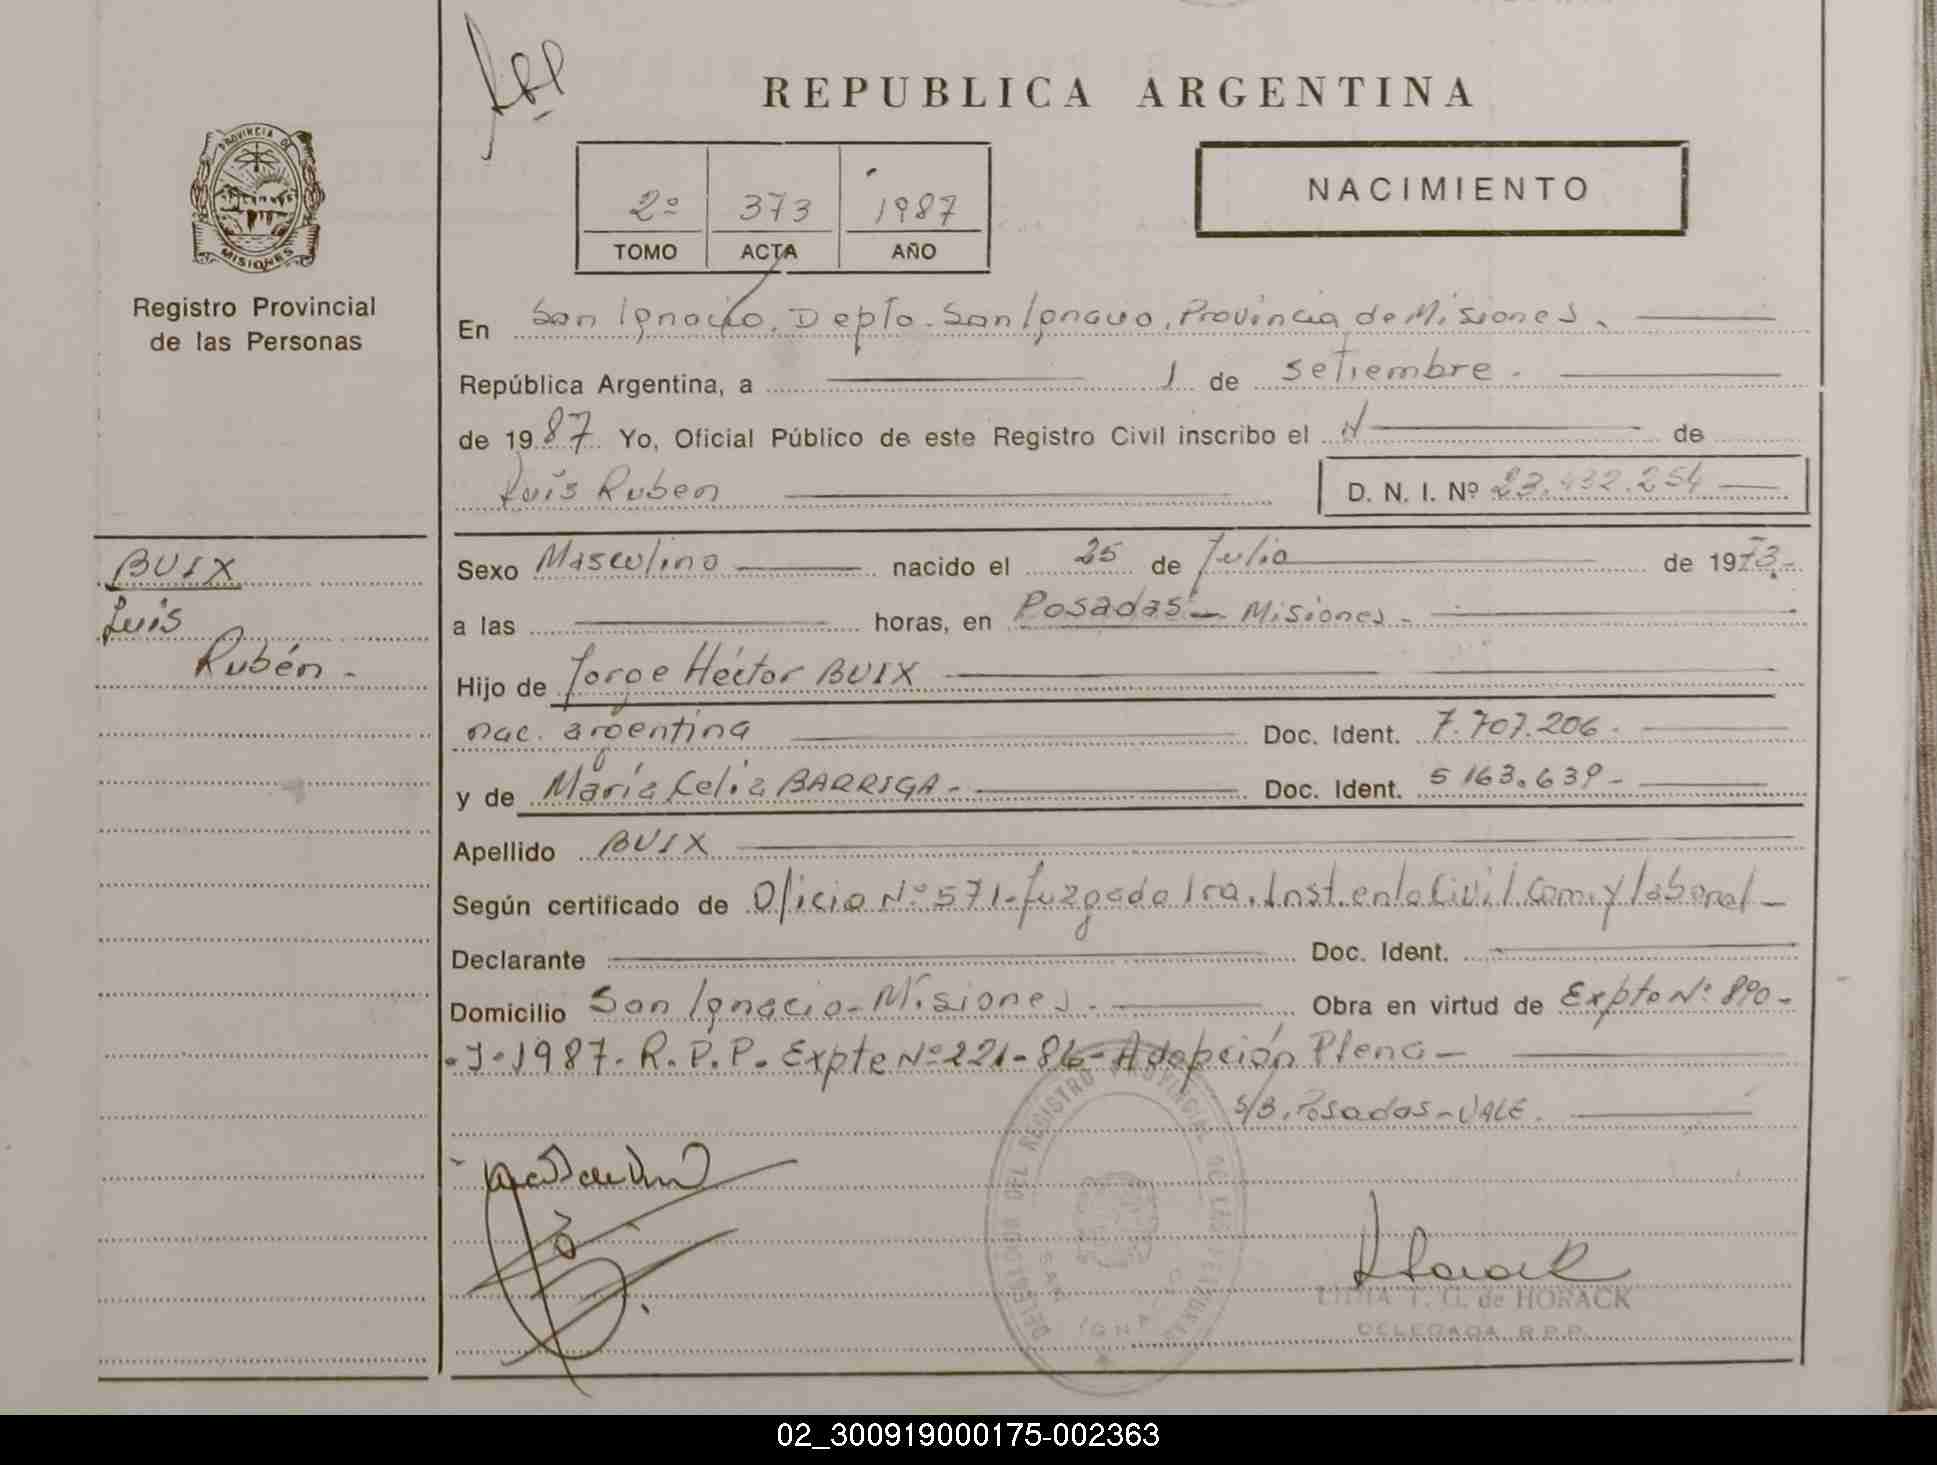 REPUBLICA ARGENTINA
PROVINCIA DE
MISIONES
Registro Provincial
de las Personas
2º 373 1987
TOMO ACTA AÑO
NACIMIENTO
En San Ignacio, Depto. San Ignacio, Provincia de Misiones.
República Argentina, a 1 de setiembre.
de 1987 Yo, Oficial Público de este Registro Civil inscribo el N de
Luis Ruben D. N. I. Nº 23.432.254
BUIX
Luis
Rubén -
Sexo Masculino nacido el 25 de Julio de 1973.-
a las horas, en Posadas - Misiones -
Hijo de Jorge Héctor BUIX
nac. argentina Doc. Ident. 7.707.206.
y de María Celia BARRIGA - Doc. Ident. 5 163.639 -
Apellido BUIX
Según certificado de Oficio Nº 571-Juzgado 1ra. Inst. en lo Civil. Com. y laboral -
Declarante Doc. Ident.
Domicilio San Ignacio - Misiones - Obra en virtud de Expte Nº 890-
-J-1987- R.P.P. Expte Nº 221-86- Adopción Plena -
S/B. Posadas - VALE.
DELEGACION DEL REGISTRO PROVINCIAL DE LAS PERSONAS
SAN IGNACIO
T. G. de HORACK
DELEGADA R.P.P.
02_300919000175-002363